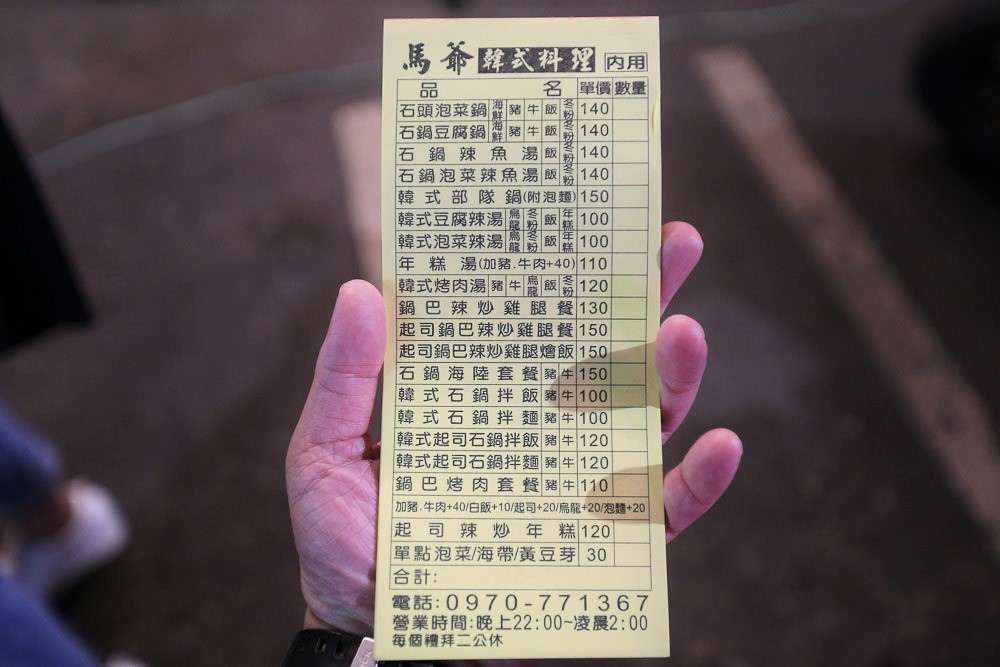 馬爺 韓式料理 內用
品名 單價 數量
石頭泡菜鍋 海鮮 豬 牛 飯 冬粉 140
石鍋豆腐鍋 海鮮 豬 牛 飯 冬粉 140
石鍋辣魚湯 飯 冬粉 140
石鍋泡菜辣魚湯 飯 冬粉 140
韓式部隊鍋(附泡麵) 150
韓式豆腐辣湯 烏龍 冬粉 飯 年糕 100
韓式泡菜辣湯 烏龍 冬粉 飯 年糕 100
年糕湯(加豬.牛肉+40) 110
韓式烤肉湯 豬 牛 烏龍 飯 冬粉 120
鍋巴辣炒雞腿餐 130
起司鍋巴辣炒雞腿餐 150
起司鍋巴辣炒雞腿燴飯 150
石鍋海陸套餐 豬 牛 150
韓式石鍋拌飯 豬 牛 100
韓式石鍋拌麵 豬 牛 100
韓式起司石鍋拌飯 豬 牛 120
韓式起司石鍋拌麵 豬 牛 120
鍋巴烤肉套餐 豬 牛 110
加豬.牛肉+40/白飯+10/起司+20/烏龍+20/泡麵+20
起司辣炒年糕 120
單點泡菜/海帶/黃豆芽 30
合計:
電話:0970-771367
營業時間:晚上22:00~凌晨2:00
每個禮拜二公休